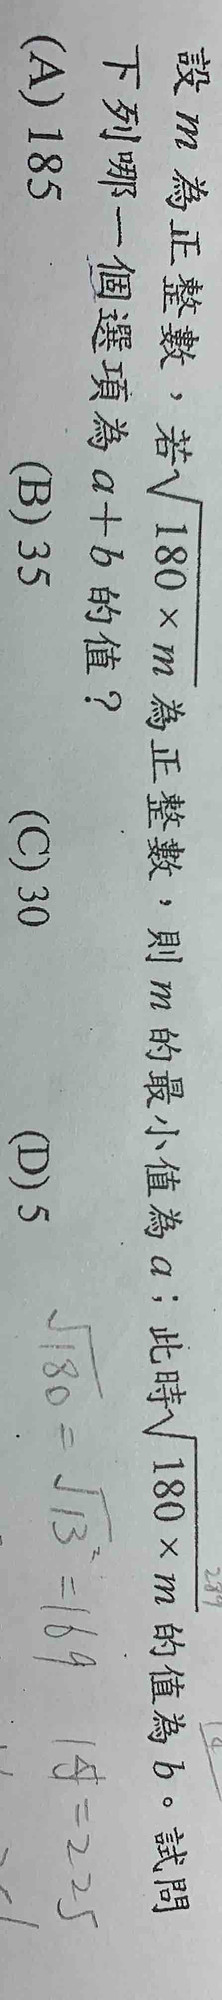 設 m 為正整數，若√180×m 為正整數，則 m 的最小值為 a；此時√180×m 的值為 b。試問
下列哪一個選項為 a＋b 的值？
(A) 185 (B) 35 (C) 30 (D) 5
√180 = √13² = 169
289